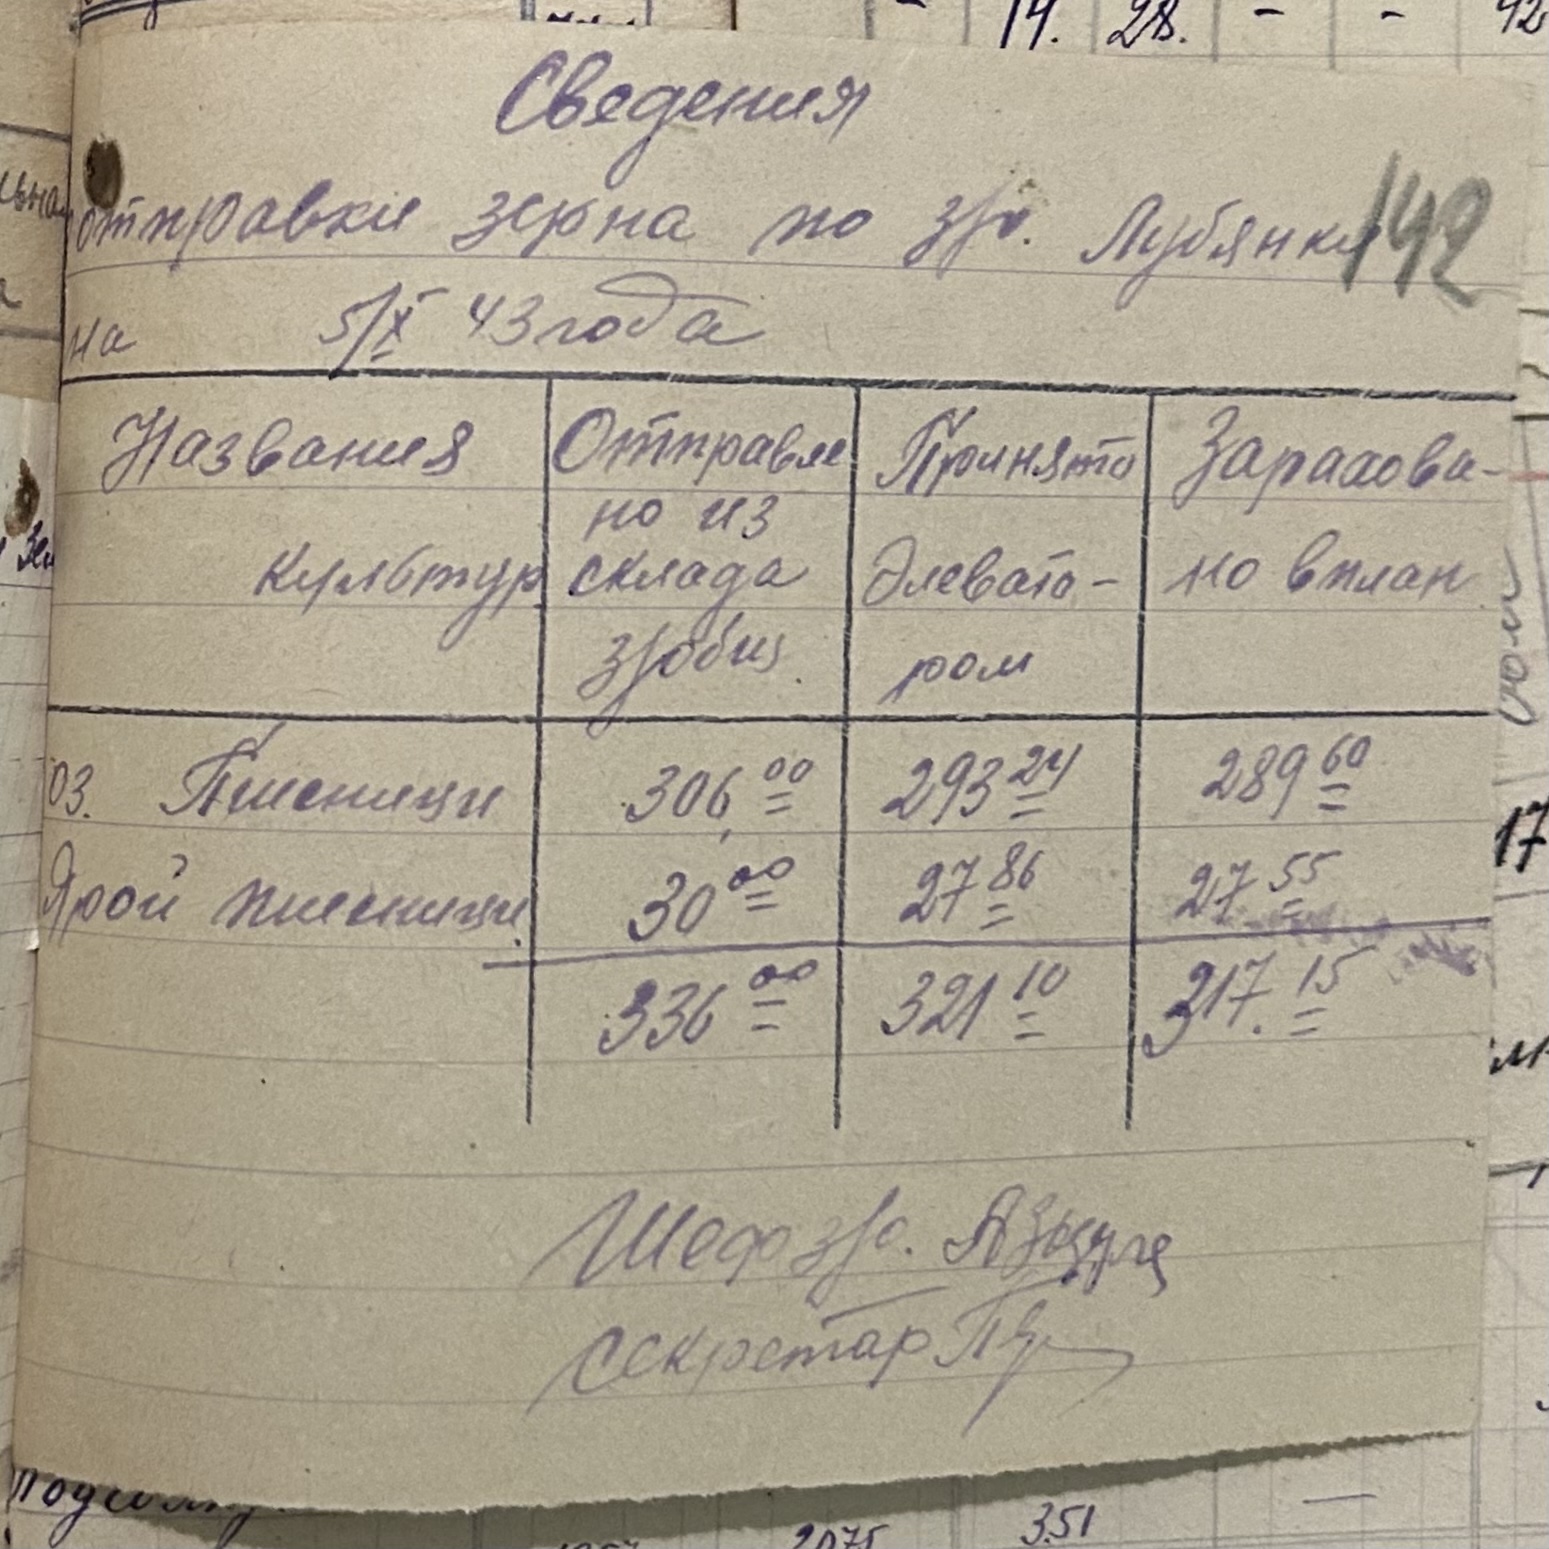 14. 28. - -
Сведения
отправки зерна по гр. Лубянки
142
на 5/X 43 года
Названия культур Отправле но из склада Принято Элевато- ром Зарахова- но в план
оз. Пшеници 306,00 293 24 289 60
Ярой пшеници 30 00 27 86 27. 55
336 00 321 10 317. 15
Шеф
секретар
17
351